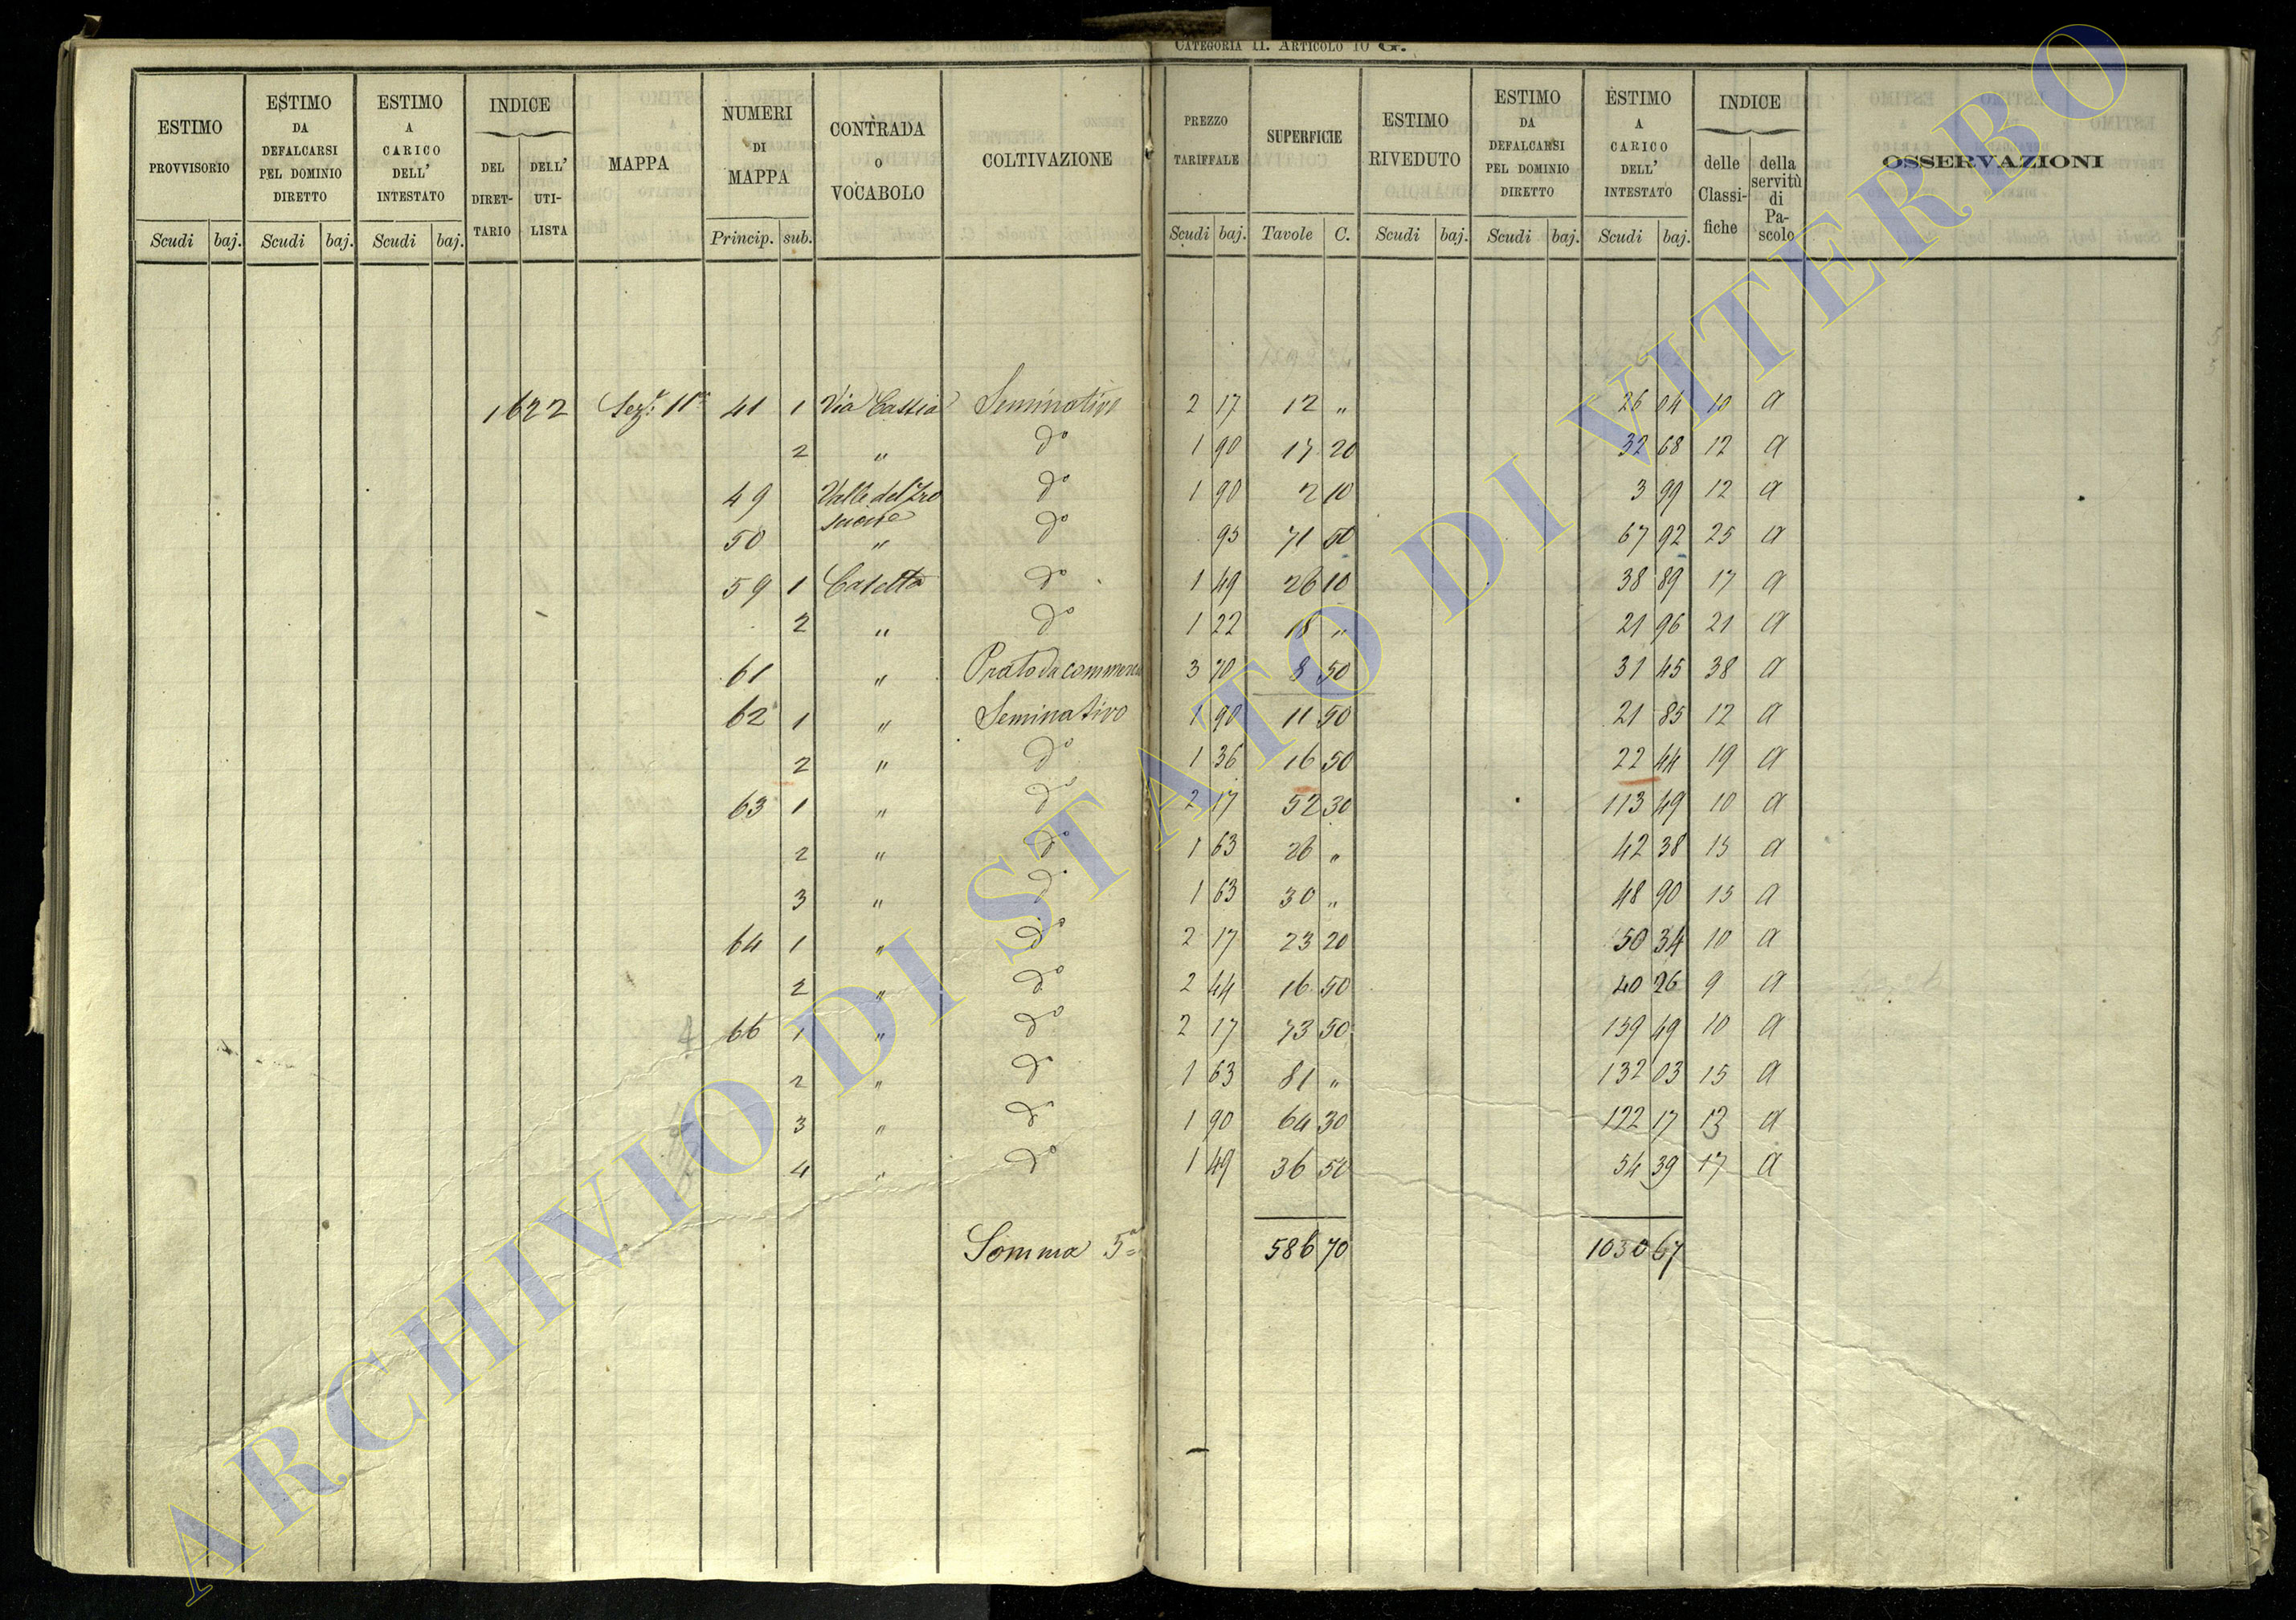 CATEGORIA II. ARTICOLO 10 G.
ESTIMO PROVVISORIO | ESTIMO DA DEFALCARSI PEL DOMINIO DIRETTO | ESTIMO A CARICO DELL' INTESTATO | INDICE DEL DIRETTARIO | DELL' UTILISTA | MAPPA | NUMERI DI MAPPA | CONTRADA O VOCABOLO | COLTIVAZIONE | PREZZO TARIFFALE | SUPERFICIE | ESTIMO RIVEDUTO | ESTIMO DA DEFALCARSI PEL DOMINIO DIRETTO | ESTIMO A CARICO DELL' INTESTATO | INDICE delle Classifiche | della servitù di Pascolo | OSSERVAZIONI
Scudi | baj. | Scudi | baj. | Scudi | baj. | Princip. | sub. | Scudi | baj. | Tavole | C. | Scudi | baj. | Scudi | baj. | Scudi | baj.
1622 Sez.e 11a 41 1 Via Cassia Seminativo 2 17 12 „ 26 04 10 a
2 „ do 1 90 17 20 32 68 12 a
49 Valle del do 1 90 2 10 3 99 12 a
50 „ do 95 71 50 67 92 25 a
59 1 Casetta do 1 49 26 10 38 89 17 a
2 „ do 1 22 18 „ 21 96 21 a
61 „ Prato da 3 70 8 50 31 45 38 a
62 1 „ Seminativo 1 90 11 50 21 85 12 a
2 „ do 1 36 16 50 22 44 19 a
63 1 „ do 2 17 52 30 113 49 10 a
2 „ do 1 63 26 „ 42 38 15 a
3 „ do 1 63 30 „ 48 90 15 a
64 1 „ do 2 17 23 20 50 34 10 a
2 „ do 2 44 16 50 40 26 9 a
66 1 „ do 2 17 73 50 159 49 10 a
2 „ do 1 63 81 „ 132 03 15 a
3 „ do 1 90 64 30 122 17 13 a
4 „ do 1 49 36 50 54 39 17 a
Somma 5a 586 70 1030 67
ARCHIVIO DI STATO DI VITERBO